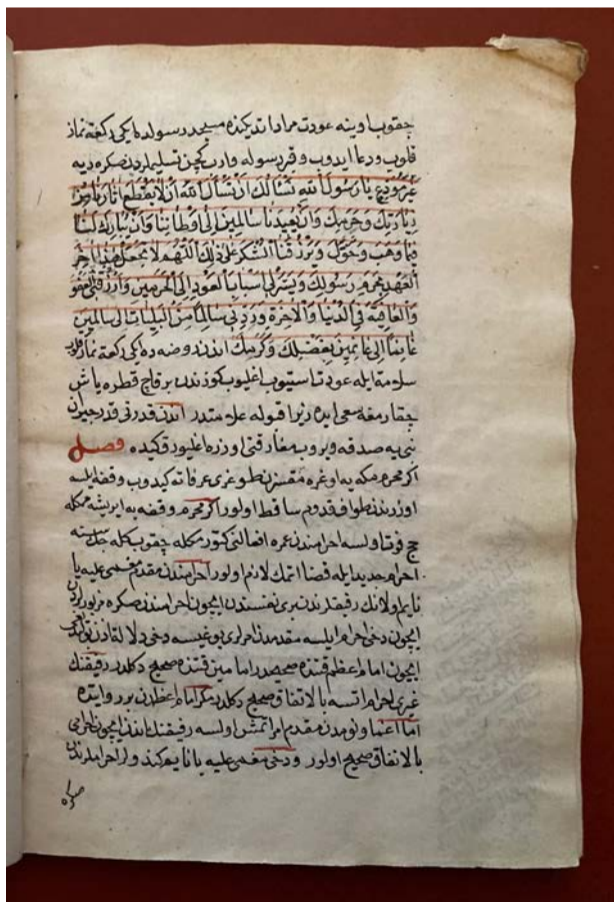 چقوب اوینه عودت مراد اتدیكده مسجد رسولده ایكی ركعت نماز
قلوب و دعا ایدوب و قبر رسوله واروب كچن تسلیملردن صكره دیه
غیر مودع یا رسول الله نسألك ان تسأل الله ان لا یقطع آثارنا من
زیارتك وحرمك وان یعیدنا سالمین الی اوطاننا وان یبارك لنا
فیما وهب وخول ویرزقنا الشكر علی ذلك اللهم لا تجعل هذا آخر
العهد بحرم رسولك ویسر لی اسباب العود الی الحرمین وارزقنی العفو
والعافیة فی الدنیا والآخرة وردنی سالما من البلیات الی سالمین
غانما الی غانمین بفضلك وكرمك اندن روضه ده ایكی ركعت نماز قلوب
سلامة ایله عودتا ستیوب اغلیوب كوزندن بر قاچ قطره یاش
چقارمغه سعی ایده زیرا قبوله علامتدر اندن قدرتی قدر جیران
نبی یه صدقه ویروب مفارقتی اوزره اغلیورق كیده فصل
اكر محرم مكه یه اوغرامقسزین طوغری عرفاته كیدوب وقفه ایلسه
اوزرندن طواف قدوم ساقط اولور اكر محرم وقفه یه ایریشه مكله
حج فوت اولسه احرامندن عمره افعالنی كتورمكله چقوب كله جك سنه
احرام جدید ایله قضا اتمك لازم اولور احرامندن مقدم مغمی علیه یا
نایم اولانك رفیقلرندن بری نفسندن ایچون احرامندن صكره مزبورلردن
ایچون دخی احرام ایلسه مقدمدن امرلری یوغیسه دخی دلالة اذن اولدوغی
ایچون امام اعظم قتنده صحیحدر امامین قتنده صحیح دكلدر رفیقنك
غیری احرام اتسه بالاتفاق صحیح دكلدر مكر امام اعظمدن بر روایتده
اما اغما و نومدن مقدم امر اتمش اولسه رفیقنك اندن ایچون احرامی
بالاتفاق صحیح اولور و دخی مغمی علیه یا نایم كندولر احراملرندن
صكره